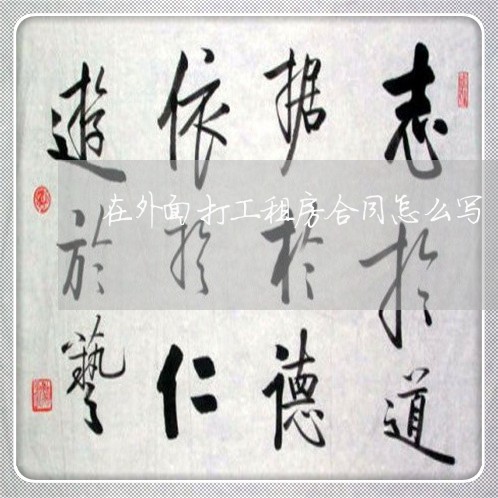 志於道
据於德
依於仁
遊於藝
在外面打工租房合同怎么写